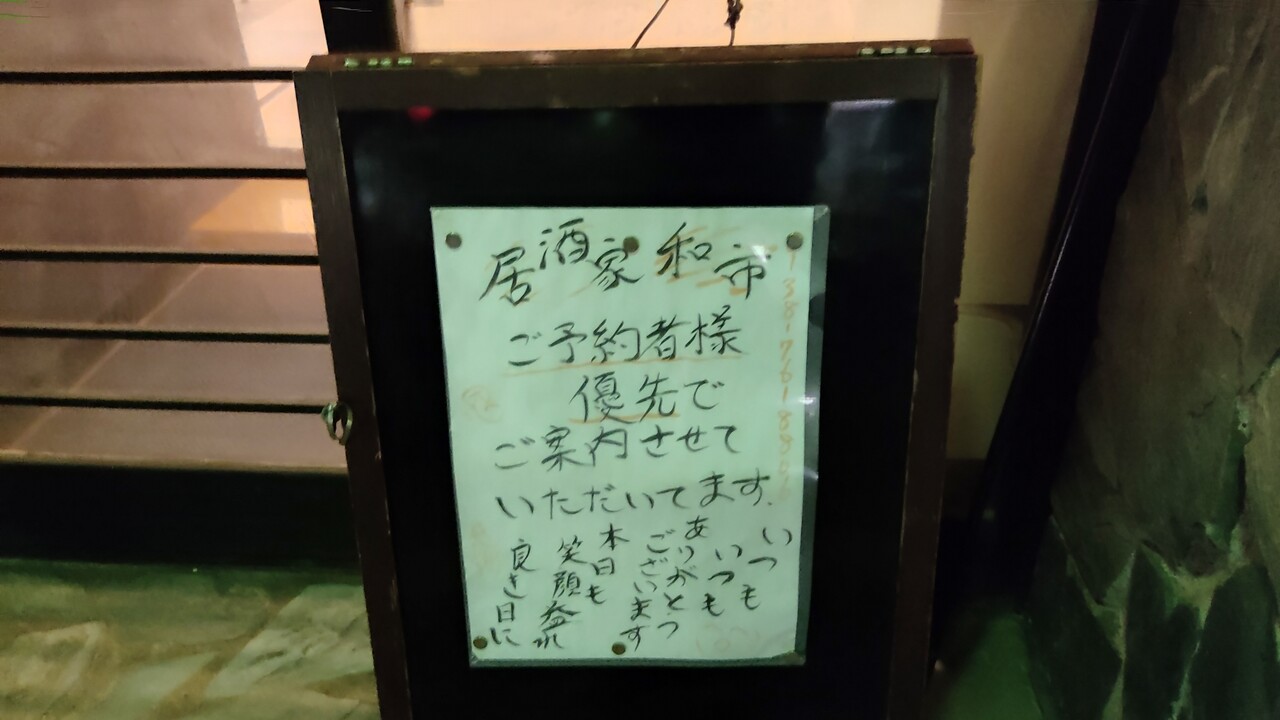 居酒家 和市
ご予約者様
優先で
ご案内させて
いただいてます.
いつも
いつも
ありがとう
ございます
本日も
笑顔溢れ
良き日に